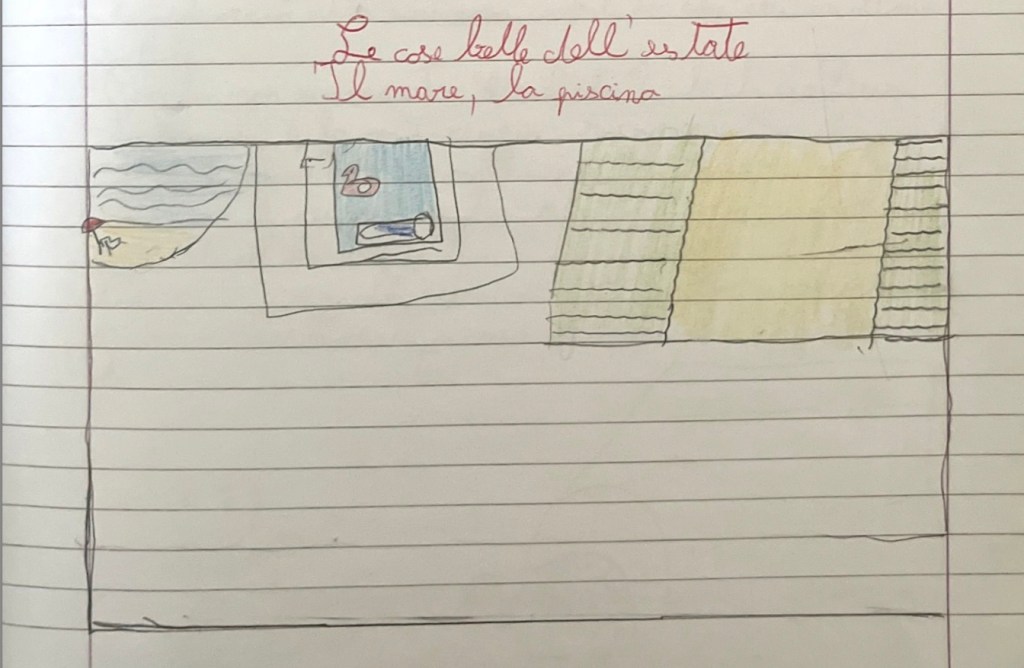 Le cose belle dell'estate
Il mare, la piscina